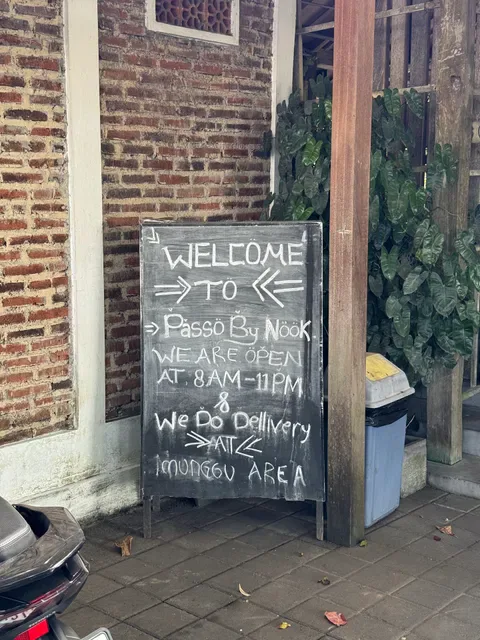 WELCOME
TO
Passo By Nook.
WE ARE OPEN
AT. 8AM-11PM
&
We Do Dellivery
AT
MUNGGU AREA